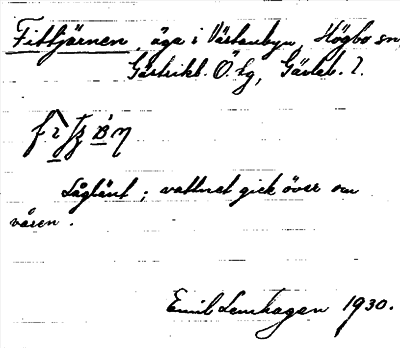 Fittjärnen, äga i Västanbyn, Högbo sn,
Gästrikl. Ö. tg, Gävleb. l.
Låglänt; vattnet gick över om
våren.
Emil Lemhagen 1930.